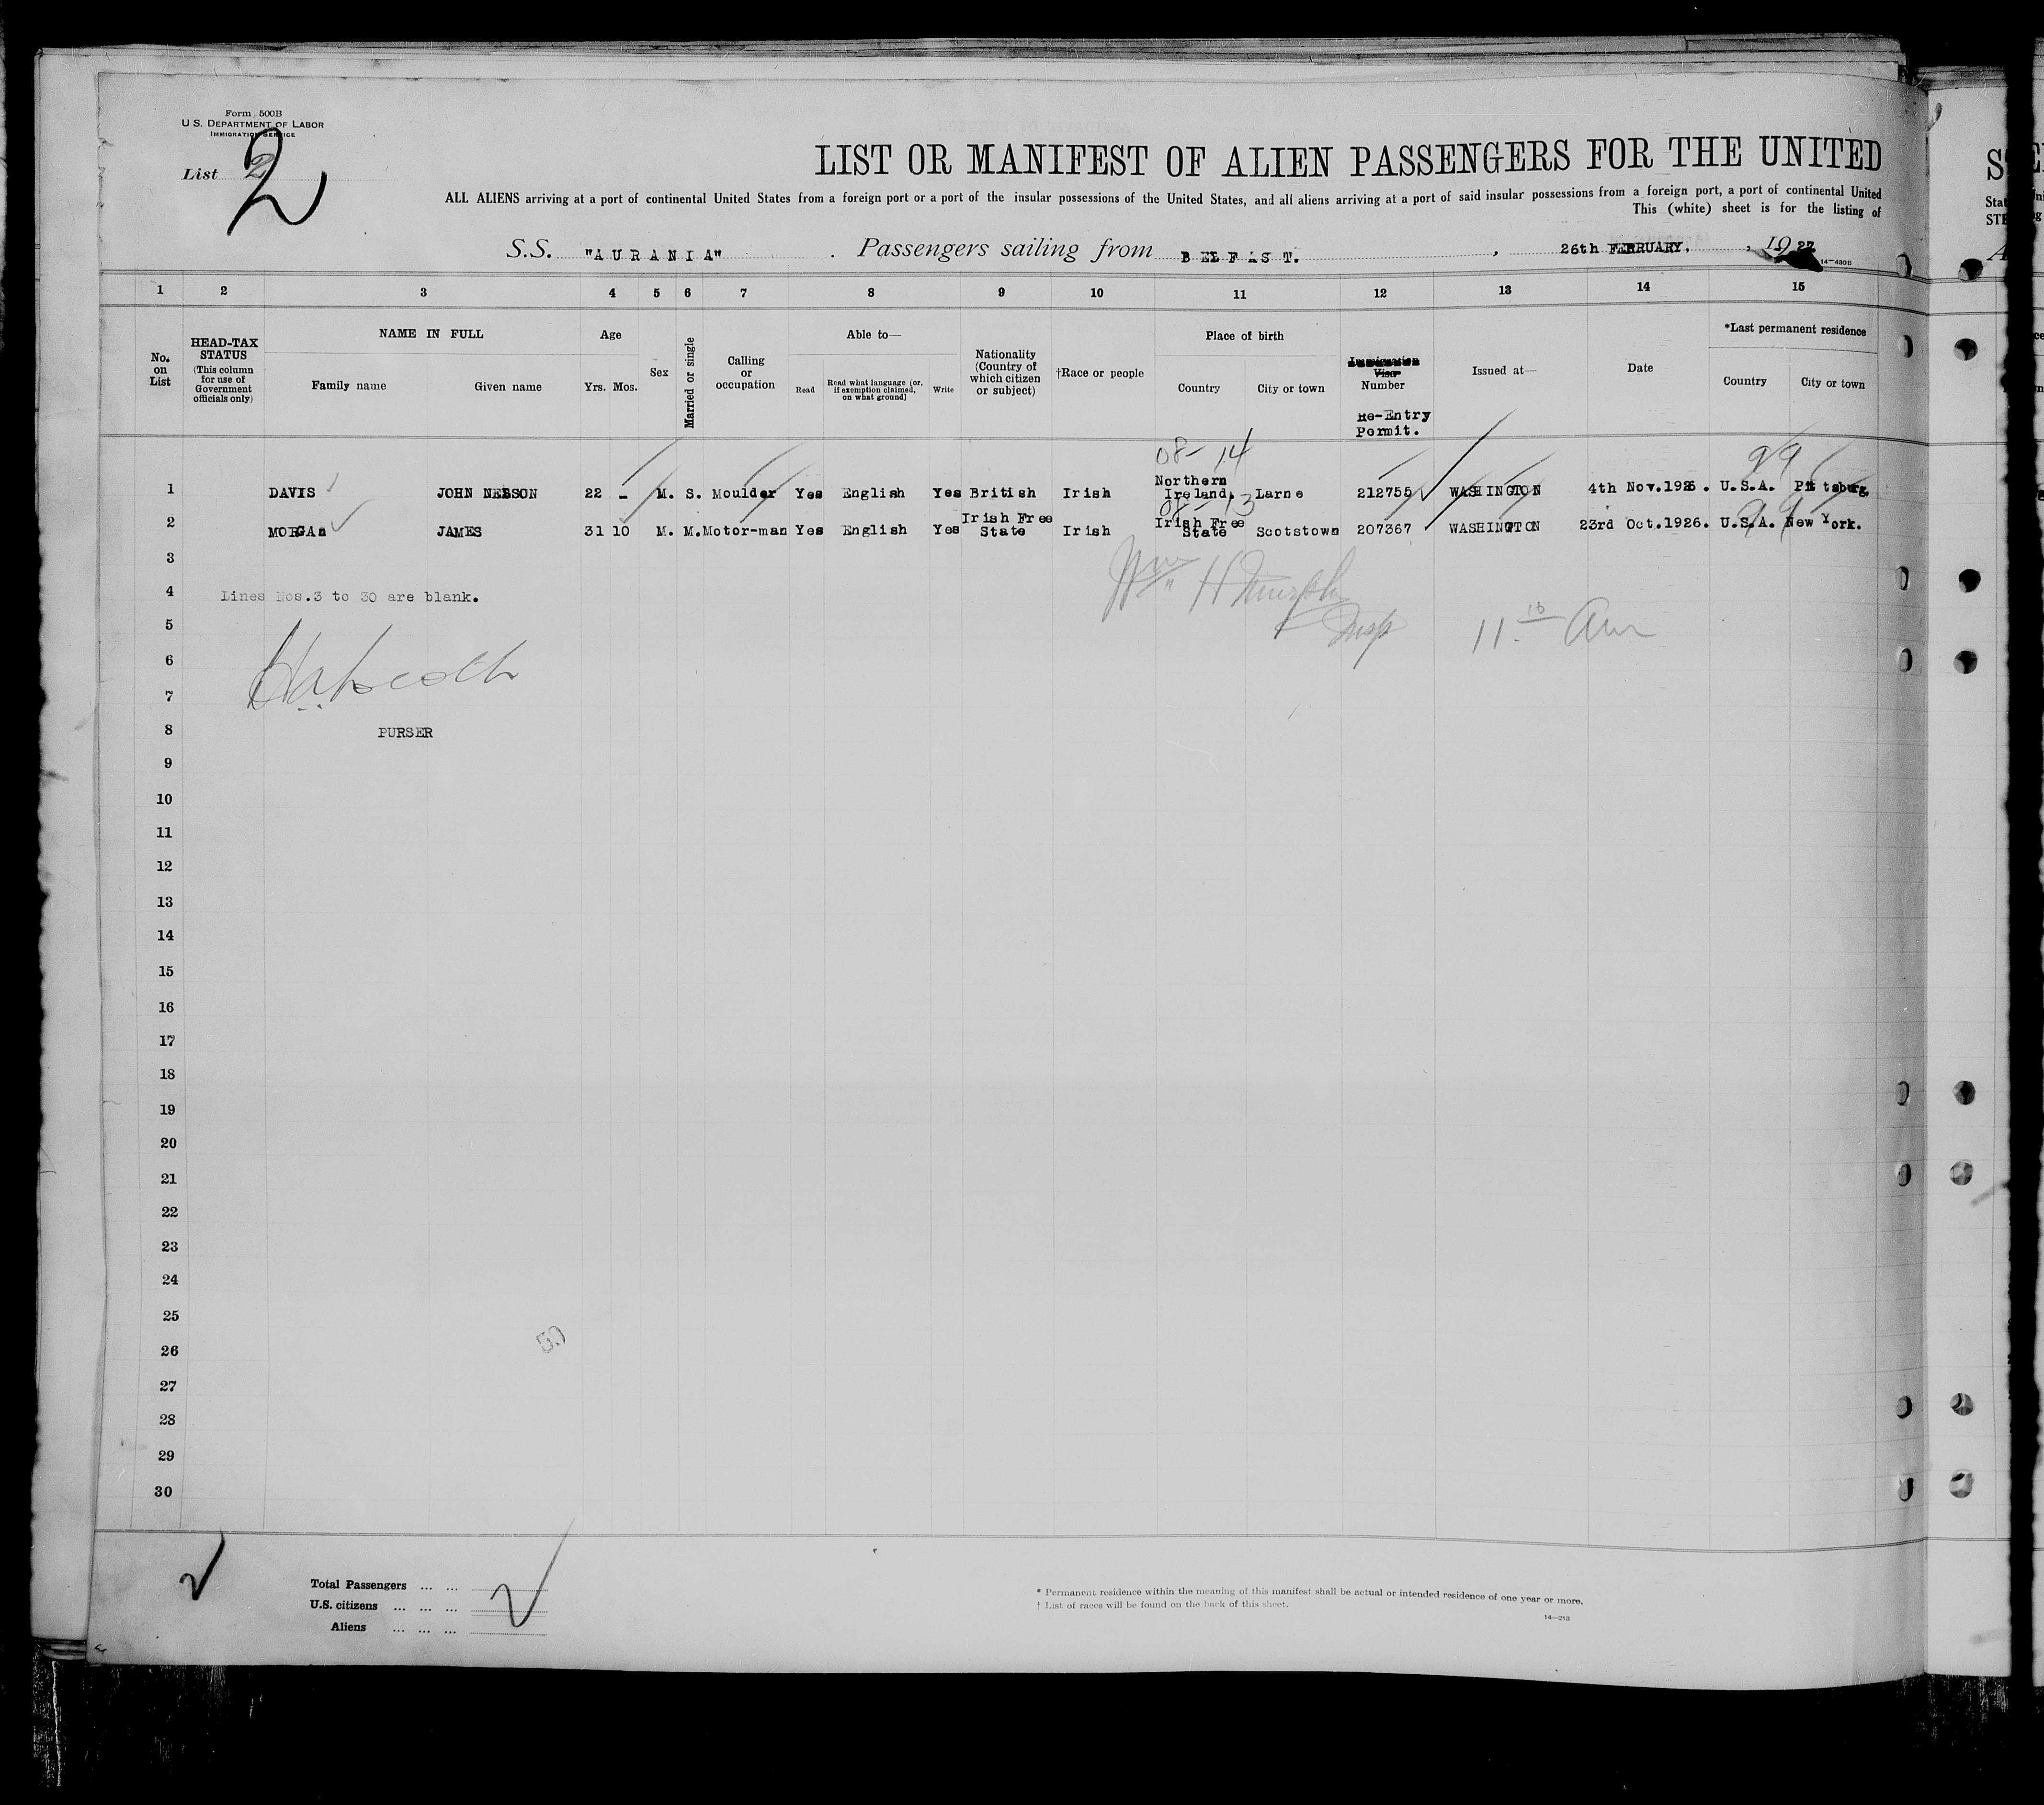 Form 500B
U.S. DEPARTMENT OF LABOR
IMMIGRATION SERVICE
List 2
2
LIST OR MANIFEST OF ALIEN PASSENGERS FOR THE UNITED
ALL ALIENS arriving at a port of continental United States from a foreign port or a port of the insular possessions of the United States, and all aliens arriving at a port of said insular possessions from a foreign port, a port of continental United
This (white) sheet is for the listing of
S.S. "AURANIA" . Passengers sailing from BELFAST. , 26th FEBRUARY. , 1927
14—480B
1 2 3 4 5 6 7 8 9 10 11 12 13 14 15
No. on List
HEAD-TAX STATUS (This column for use of Government officials only)
NAME IN FULL
Family name Given name
Age
Yrs. Mos.
Sex
Married or single
Calling or occupation
Able to—
Read Read what language [or, if exemption claimed, on what ground] Write
Nationality (Country of which citizen or subject)
†Race or people
Place of birth
Country City or town
Immigration Visa Number
Re-Entry Permit.
Issued at—
Date
*Last permanent residence
Country City or town
08- 14 99
1 DAVIS JOHN NELSON 22 - M. S. Moulder Yes English Yes British Irish Northern Ireland. Larne 212755 WASHINGTON 4th Nov.1926. U.S.A. Pittsburg.
08- 13 99
2 MORGAN JAMES 31 10 M. M. Motor-man Yes English Yes Irish Free State Irish Irish Free State Scotstown 207367 WASHINGTON 23rd Oct.1926. U.S.A. New York.
3
4 Lines Nos.3 to 30 are blank.
Wm H Murphy
Insp
11 10 am
5
6
7
8 PURSER
9
10
11
12
13
14
15
16
17
18
19
20
21
22
23
24
25
26
27
28
29
30
Total Passengers ... ...
U.S. citizens ... ... ...
Aliens ... ... ...
* Permanent residence within the meaning of this manifest shall be actual or intended residence of one year or more.
† List of races will be found on the back of this sheet.
14—213